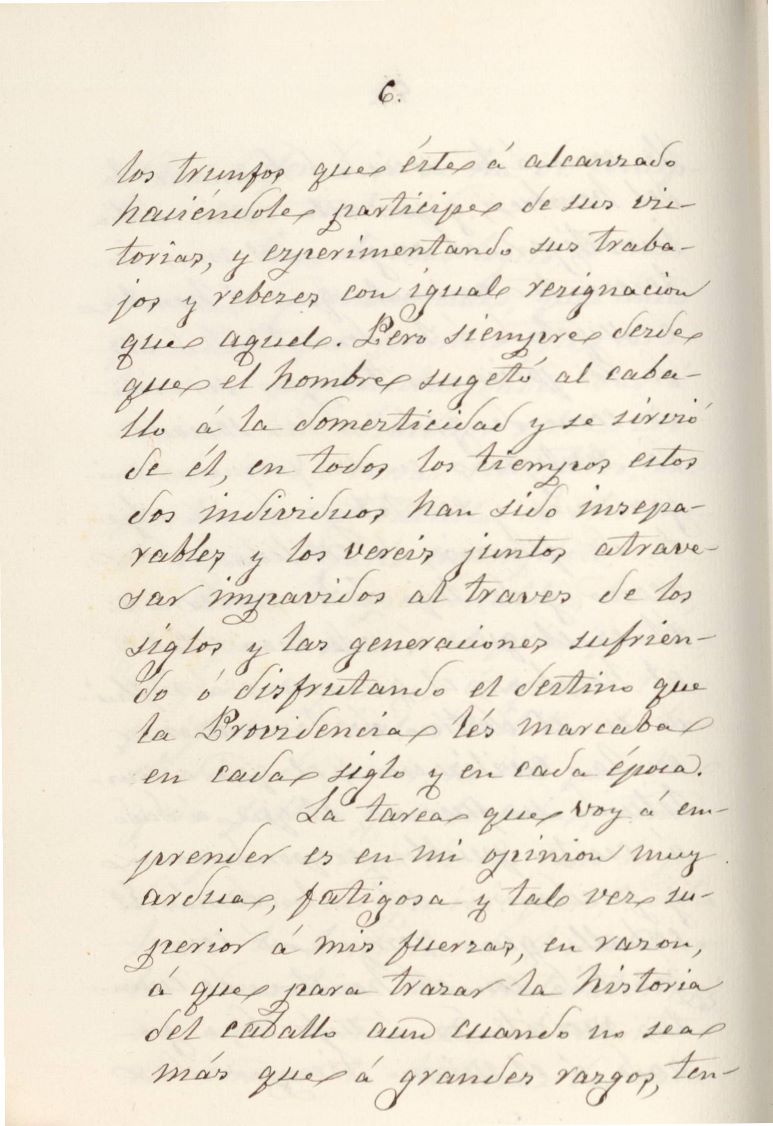 6.
los trunfos que éste á alcanzado
haciéndole participe de sus vic-
torias, y experimentando sus traba-
jos y rebezes con igual rezignacion
que aquel. Pero siempre desde
que el hombre sugetó al caba-
llo á la domesticidad y se sirvió
de él, en todos los tiempos estos
dos individuos han sido insepa-
rables y los vereis juntos atrave-
sar impavidos al traves de los
siglos y las generaciones sufrien-
do ó disfrutando el destino que
la Providencia lés marcaba
en cada siglo y en cada época.
La tarea que voy á em-
prender es en mi opinion muy
ardua, fatigosa y tal vez su-
perior á mis fuerzas, en razon,
á que para trazar la historia
del caballo aun cuando no sea
más que á grandes razgos, ten-